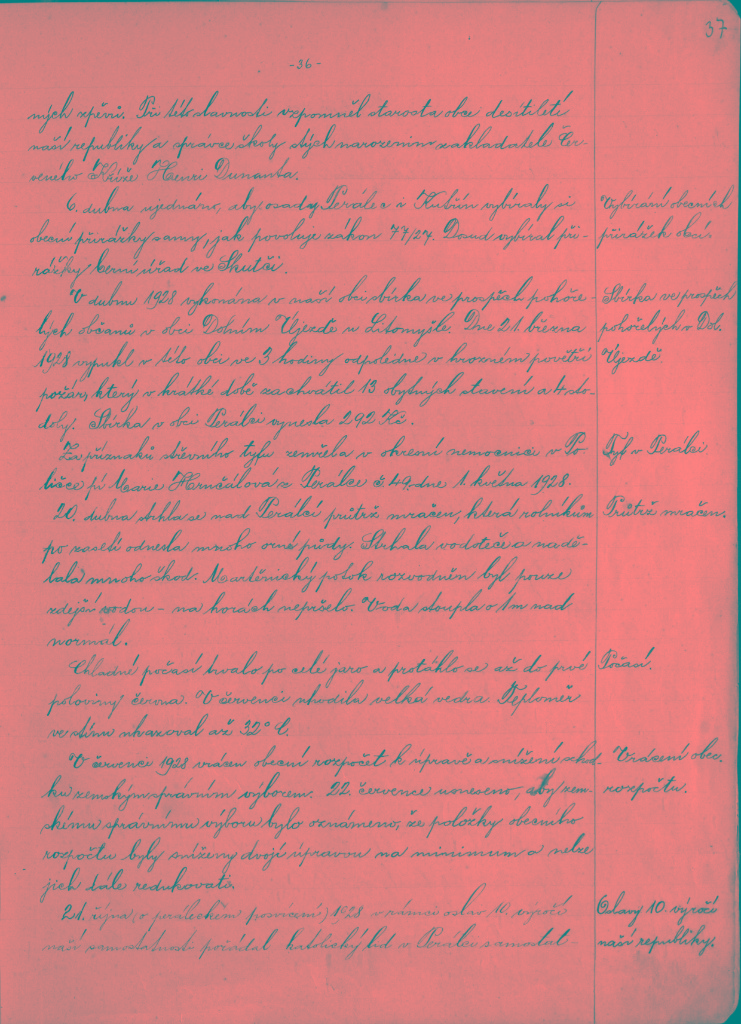 37
-36-
ných zpěvů. Při této slavnosti vzpomněl starosta obce desítiletí
naší republiky a správce školy stých narozenin zakladatele Čer-
veného Kříže Henri Dunanta.
6. dubna ujednáno, aby osady Perálec i Kutřín vybíraly si
obecní přirážky samy, jak povoluje zákon 77/27. Dosud vybíral při-
rážky berní úřad ve Skutči.
Vybírání obecních
přirážek obcí.
V dubnu 1928 vykonána v naší obci sbírka ve prospěch pohoře-
lých občanů v obci Dolním Újezdě u Litomyšle. Dne 21. března
1928 vypukl v této obci ve 3 hodiny odpoledne v hrozném povětří
požár, který v krátké době zachvátil 13 obytných stavení a 4 sto-
doly. Sbírka v obci Perálci vynesla 292 Kč.
Sbírka ve prospěch
pohořelých v Dol.
Újezdě
Za příznaků střevního tyfu zemřela v okresní nemocnici v Po-
ličce pí Marie Hrnčálová z Perálce č. 49, dne 1. května 1928.
Tyf v Perálci
20. dubna strhla se nad Perálcí průtrž mračen, která rolníkům
po zasetí odnesla mnoho orné půdy. Strhala vodoteče a nadě-
lala mnoho škod. Martinický potok rozvodněn byl pouze
zdejší vodou - na horách nepršelo. Voda stoupla o 1 m nad
normál.
Průtrž mračen.
Chladné počasí trvalo po celé jaro a protáhlo se až do prvé
poloviny června. V červenci uhodila velká vedra. Teploměr
ve stínu ukazoval až 32° C.
Počasí.
V červenci 1928 vrácen obecní rozpočet k úpravě a snížení schod-
ku zemským správním výborem. 22. července usneseno, aby zem-
skému správnímu výboru bylo oznámeno, že položky obecního
rozpočtu byly sníženy dvojí úpravou na minimum a nelze
jich dále redukovati.
Vrácení obec.
rozpočtu.
21. října (o peráleckém posvícení) 1928 v rámci oslav 10. výročí
naší samostatnosti požádal katolický lid v Perálci samostat-
Oslavy 10. výročí
naší republiky.